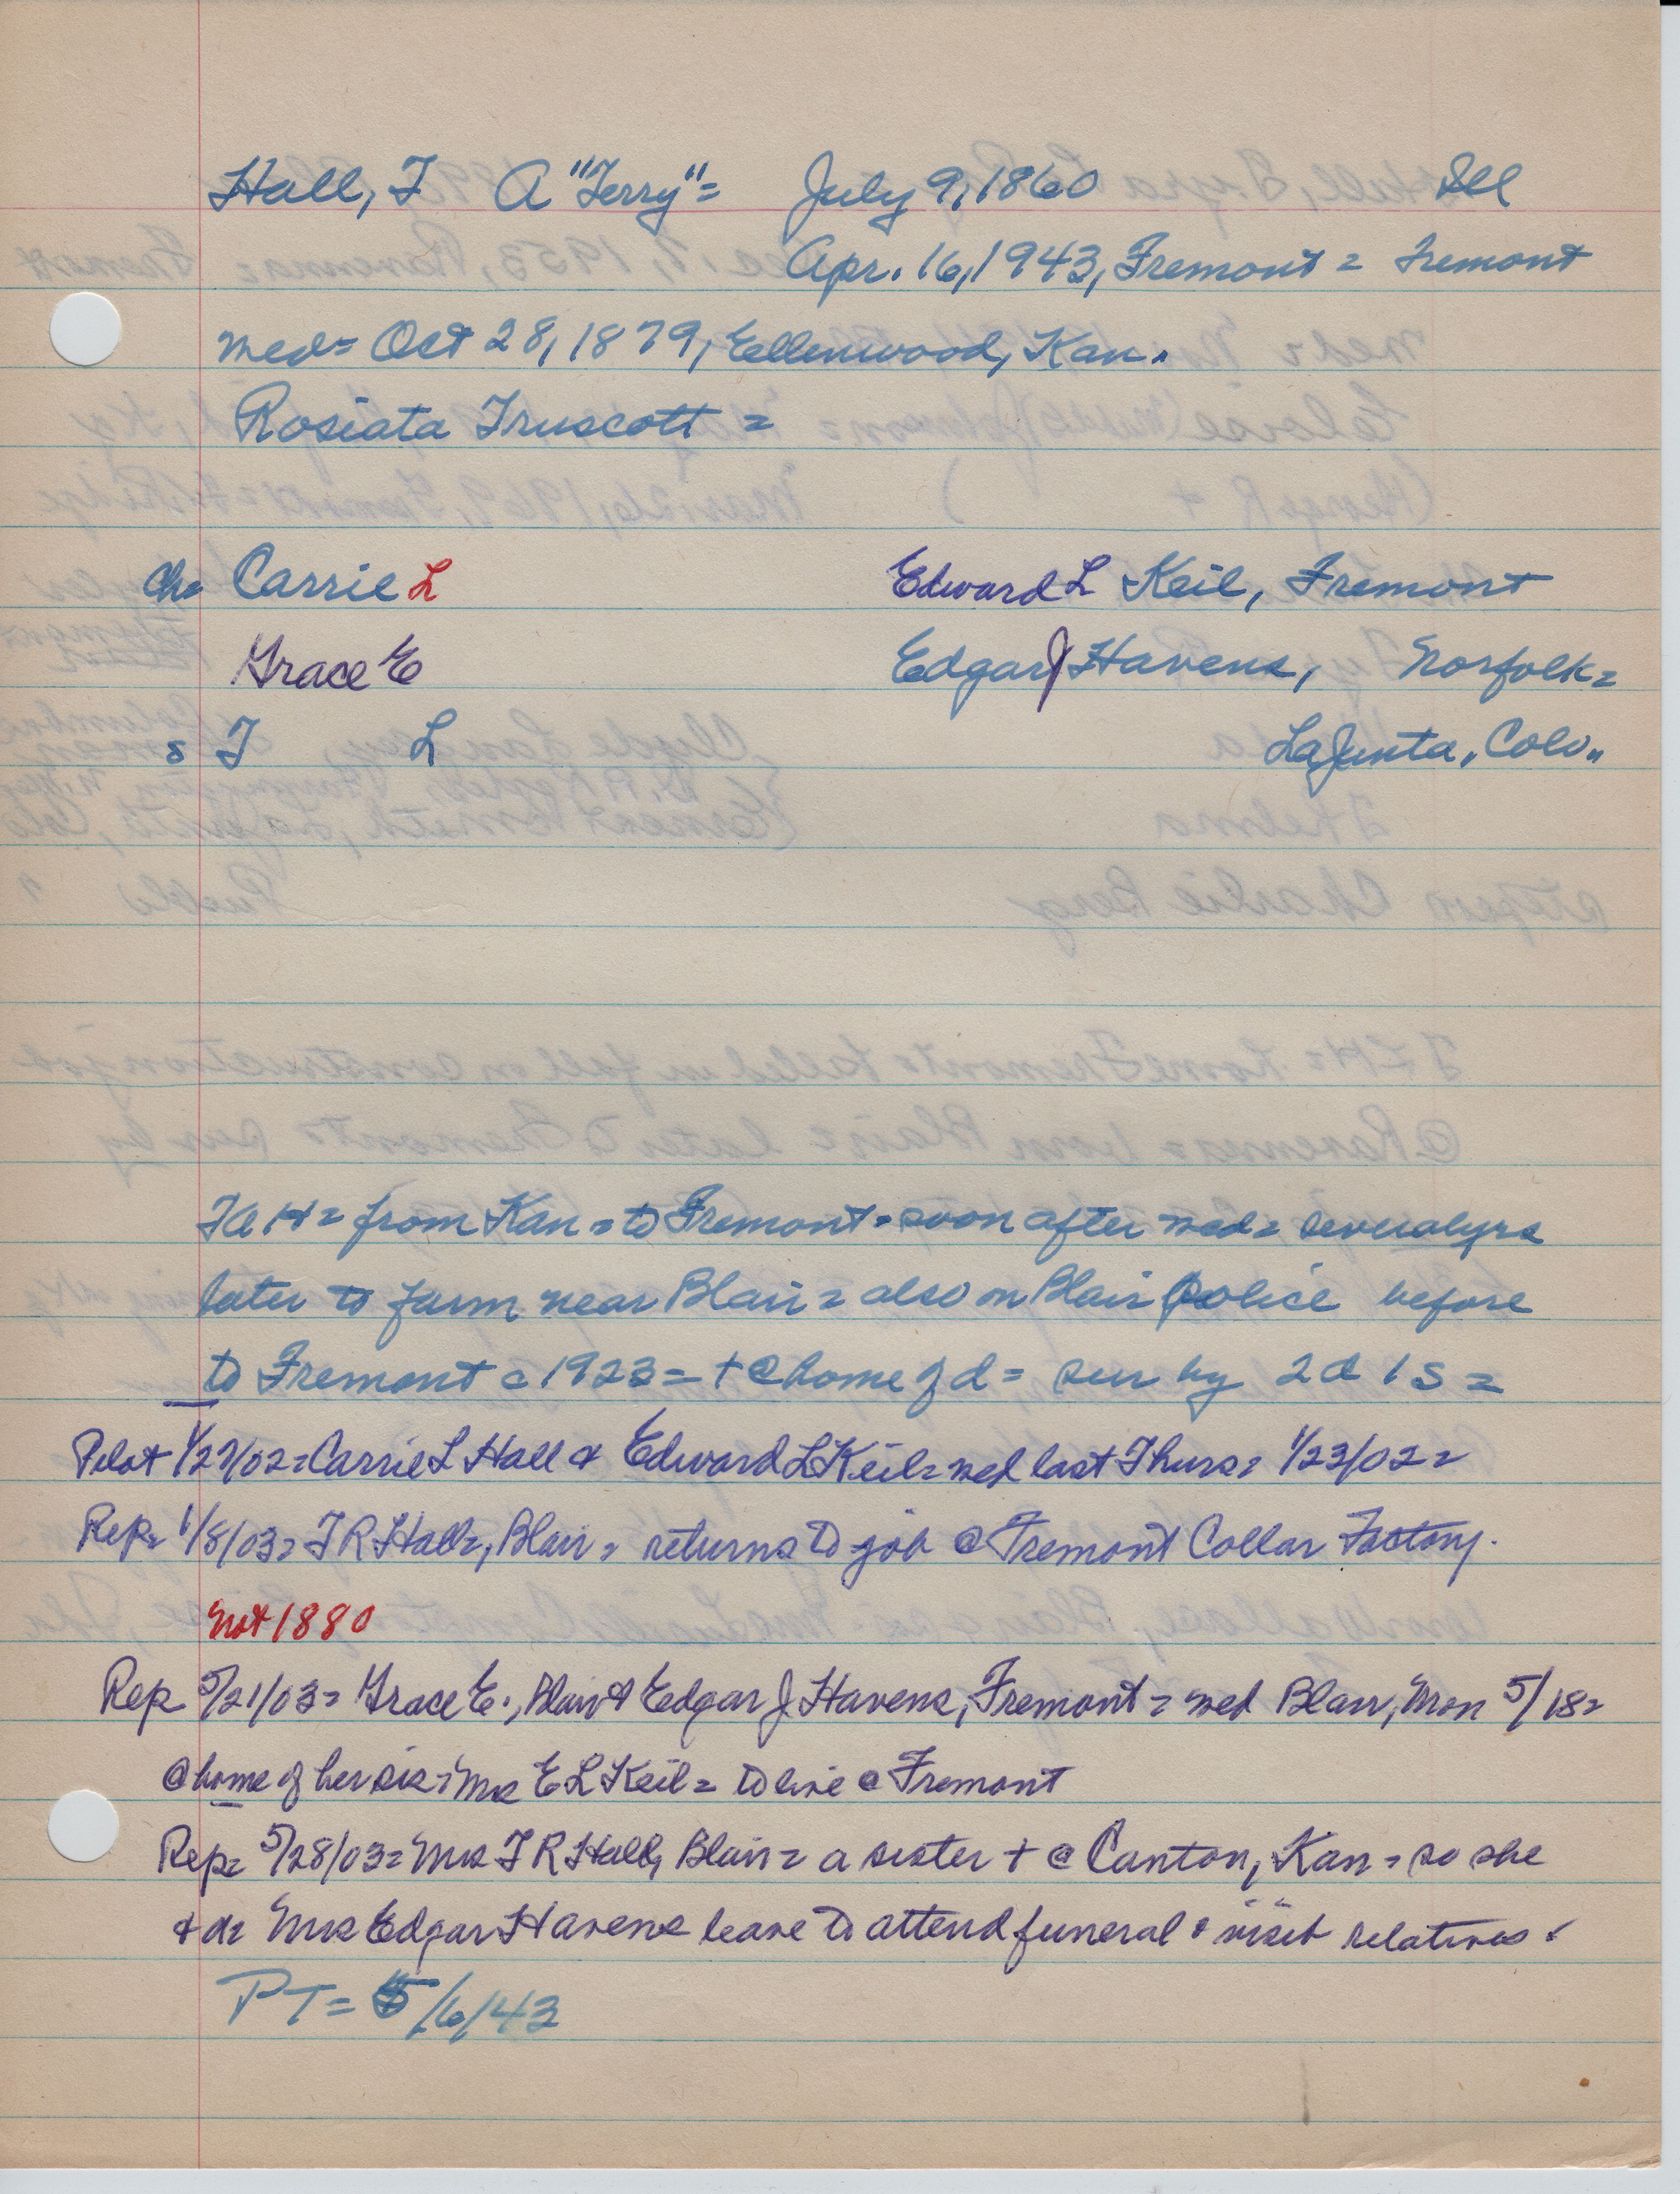 Hall, T A "Terry" = July 9, 1860 Ill
Apr. 16, 1943, Fremont = Fremont
med = Oct 28, 1879, Ellenwood, Kan.
Rosiata Truscott =
Ch= Carrie L Edward L Keil, Fremont
Grace E Edgar J Havens, Norfolk=
s T L LaJunta, Colo.
TAH = from Kan = to Fremont = soon after med = several yrs
later to farm near Blair = also on Blair Police before
to Fremont c 1923 = + @ home of d = sur by 2 d 1 s =
Pilot 1/27/02 = Carrie L Hall & Edward L Keil = med last Thurs = 1/23/02 =
Rep= 1/8/03 = T R Hall, Blair = returns to job @ Fremont Collar Factory.
Not 1880
Rep 5/21/03 = Grace E., Blair & Edgar J Havens, Fremont = med Blair, Mon 5/18=
@ home of her sis = Mrs E L Keil = to live @ Fremont
Rep= 5/28/03 = Mrs T R Hall, Blair = a sister + @ Canton, Kan = so she
& d= Mrs Edgar Havens leave to attend funeral & visit relatives.
PT = 5/6/43